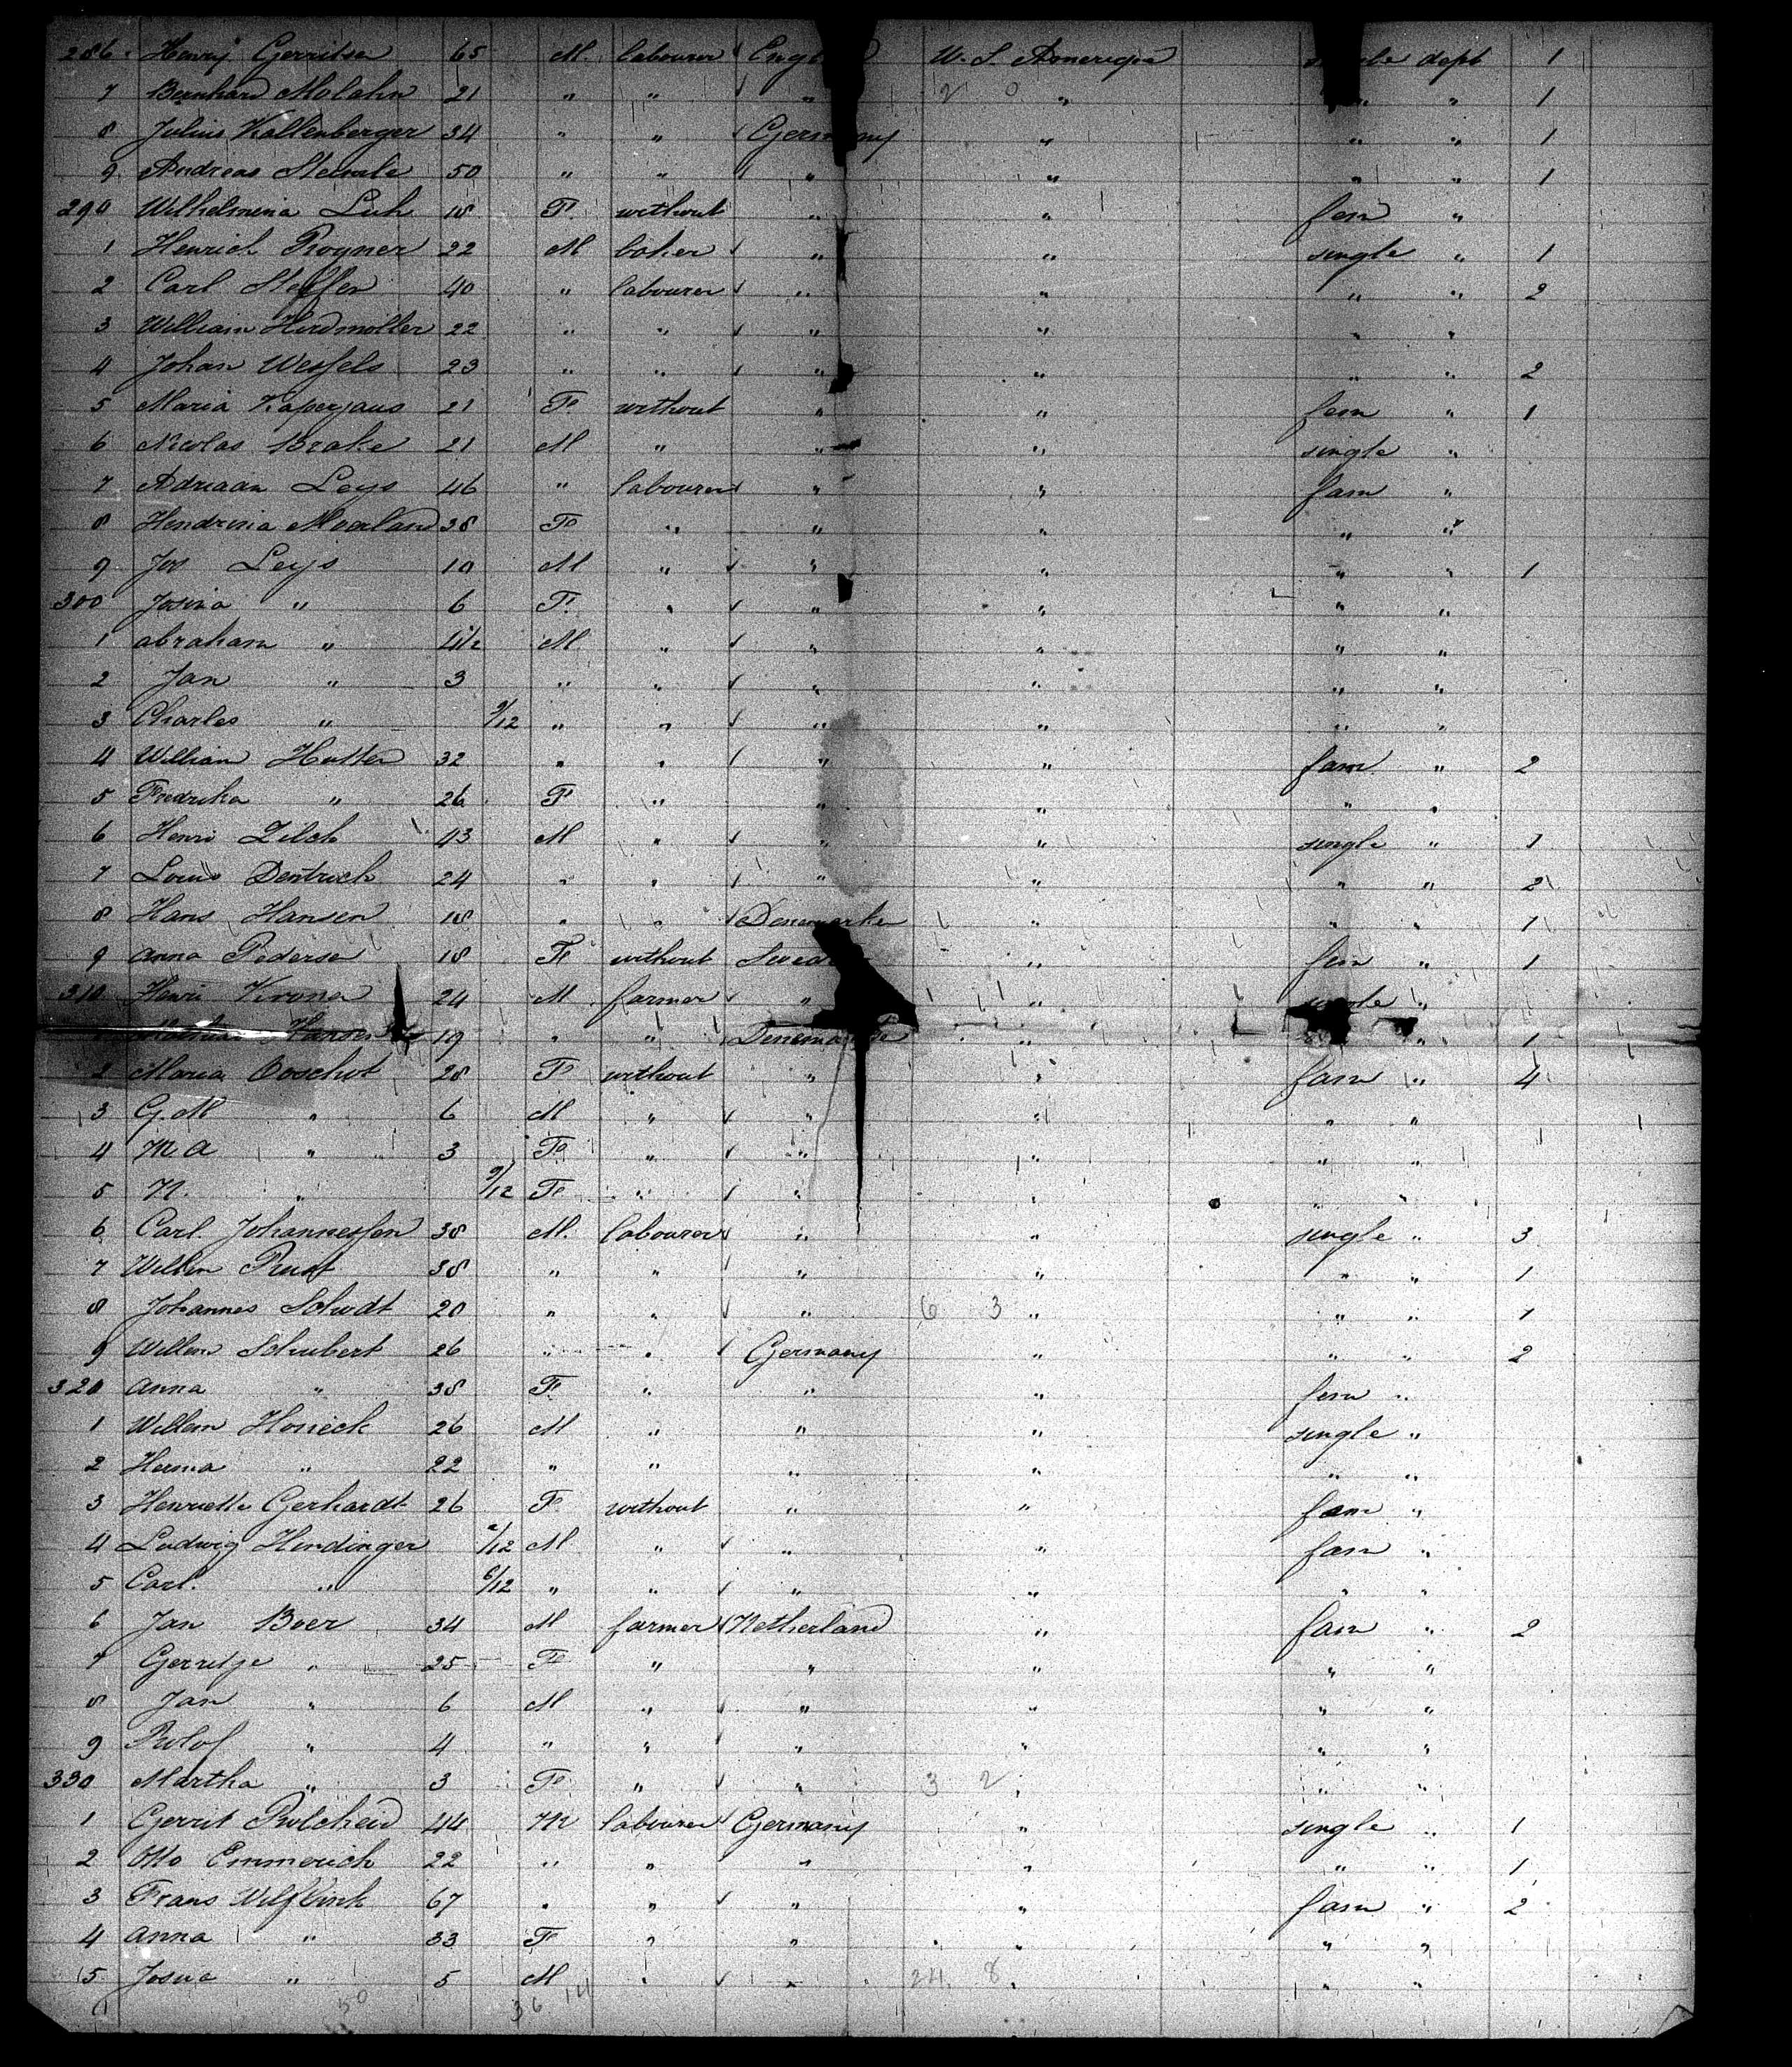 286 Henry Gerritsen 65 M. labourer W. S. Amerika dept 1
7 Bernhard Molahn 21 " " " 2 0 " " " 1
8 Julius Kallenberger 34 " " Germany " " " 1
9 Andreas Stemle 50 " " " " " " 1
290 Wilhelmina Luh 18 F without " " fem "
1 Henrich Rogner 22 M baker " " single " 1
2 Carl Steffen 40 " labourer " " " " 2
3 William Hudmoller 22 " " " " " "
4 Johan Wessels 23 " " " " " " 2
5 Maria 21 F without " " fem " 1
6 Nicolas Brake 21 M " " " single "
7 Adriaan Leys 46 " labourer " " fam "
8 Hendrina Moerland 38 F " " " " "
9 Jos Leys 10 M " " " " " 1
300 Josina " 6 F " " " " "
1 abraham " 4 1/2 M " " " " "
2 Jan " 3 " " " " " "
3 Charles " 9/12 " " " " " "
4 William Hutter 32 " " " " fam " 2
5 Fredrika " 26 F " " " " "
6 Henri Zilch 43 M " " " single " 1
7 Louis Dentrich 24 " " " " " " 2
8 Hans Hansen 18 " " Denemarke " " " 1
9 anna Pederse 18 F without " fem " 1
310 Henri Krona 24 M farmer " " single "
19 " " Denemarke " " 1
2 Maria Ooschot 28 F without " " fam " 4
3 G. M " 6 M " " " " "
4 M. a " 3 F " " " " "
5 N. " 9/12 F " " " " "
6 Carl Johannessen 38 M. labourer " " single " 3
7 Willem Rust 38 " " " " " " 1
8 Johannes 20 " " " 6 3 " " " 1
9 Willem Schubert 26 " " Germany " " " 2
320 anna " 38 F " " " fem "
1 Willem Honeck 26 M " " " single "
2 Herma " 22 " " " " " "
3 Henriette Gerhardt 26 F without " " fam "
4 Ludwig Hindinger /12 M " " " fam "
5 Carl. " 6/12 " " " " " "
6 Jan Boer 34 M farmer Netherland " fam " 2
7 Gerritje " 25 F " " " " "
8 Jan " 6 M " " " " "
9 Rolof " 4 " " " " " "
330 Martha " 3 F " " 3 2 " " "
1 Gerrit Rolcheid 44 M labourer Germany " single " 1
2 Otto Emmerich 22 " " " " " " 1
3 Frans Wilflink 67 " " " " fam " 2
4 anna " 33 F " " " " "
5 Josua " 5 M " " 24 8 " " "
50 36 14